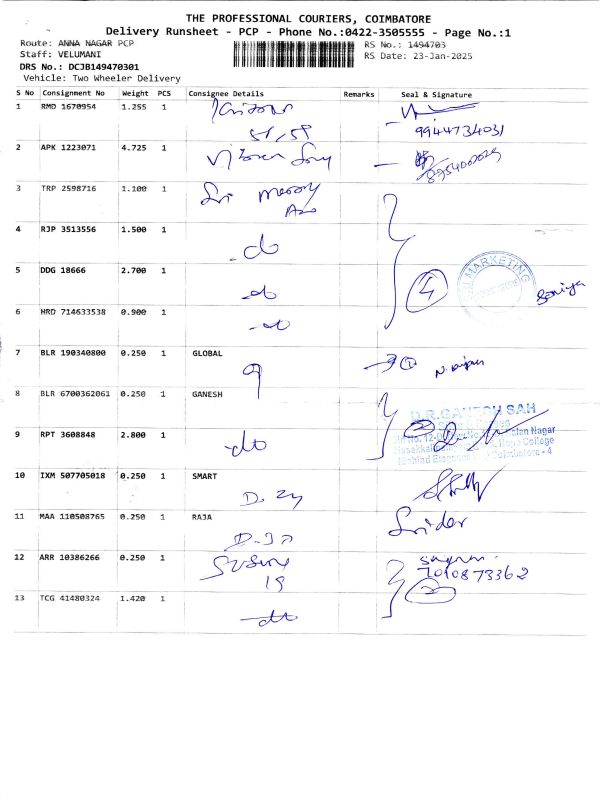 THE PROFESSIONAL COURIERS, COIMBATORE
Delivery Runsheet - PCP - Phone No.:0422-3505555 - Page No.:1
Route: ANNA NAGAR PCP RS No.: 1494703
Staff: VELUMANI RS Date: 23-Jan-2025
DRS No.: DCJB149470301
Vehicle: Two Wheeler Delivery
S No Consignment No Weight PCS Consignee Details Remarks Seal & Signature
1 RMD 1670954 1.255 1
9944734031
2 APK 1223071 4.725 1
3 TRP 2598716 1.100 1 Sri
4 RJP 3513556 1.500 1 -do
MARKETING
5 DDG 18666 2.700 1 -do 4 Soniya
6 HRD 714633538 0.900 1 -do
7 BLR 190340800 0.250 1 GLOBAL
9
8 BLR 6700362061 0.250 1 GANESH
D.R.GANESH SAH
9 RPT 3608848 2.800 1 -do 2
Coimbatore - 4
10 IXM 507705018 0.250 1 SMART
D.
11 MAA 110508765 0.250 1 RAJA
Sridar
12 ARR 10386266 0.250 1
19 7010873362
13 TCG 41480324 1.420 1 2
-do